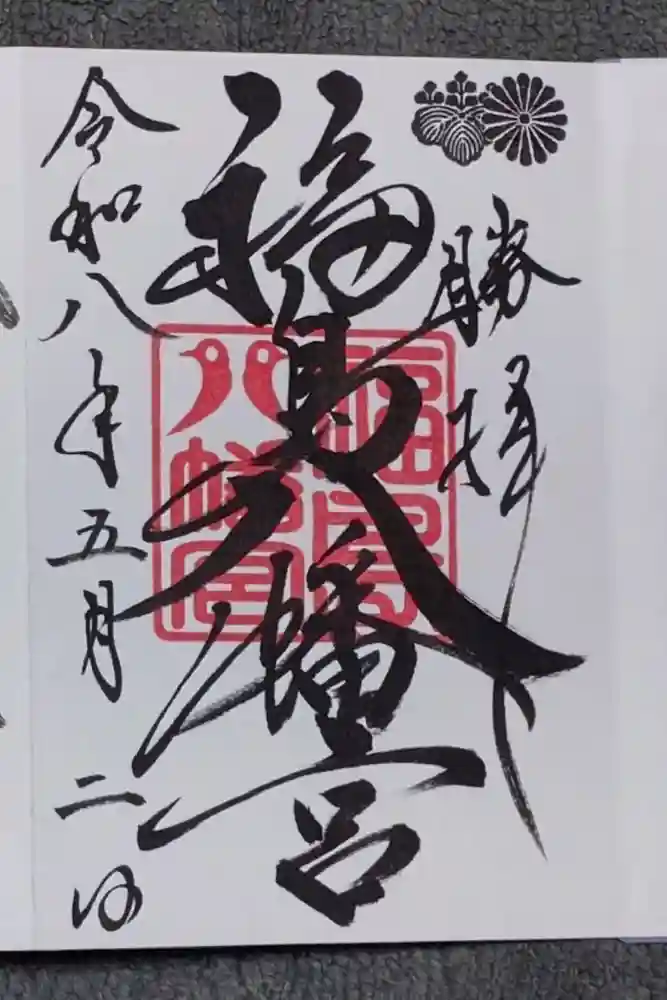 勝拝
福島八幡宮
福島
八幡宮
令和八年五月二日